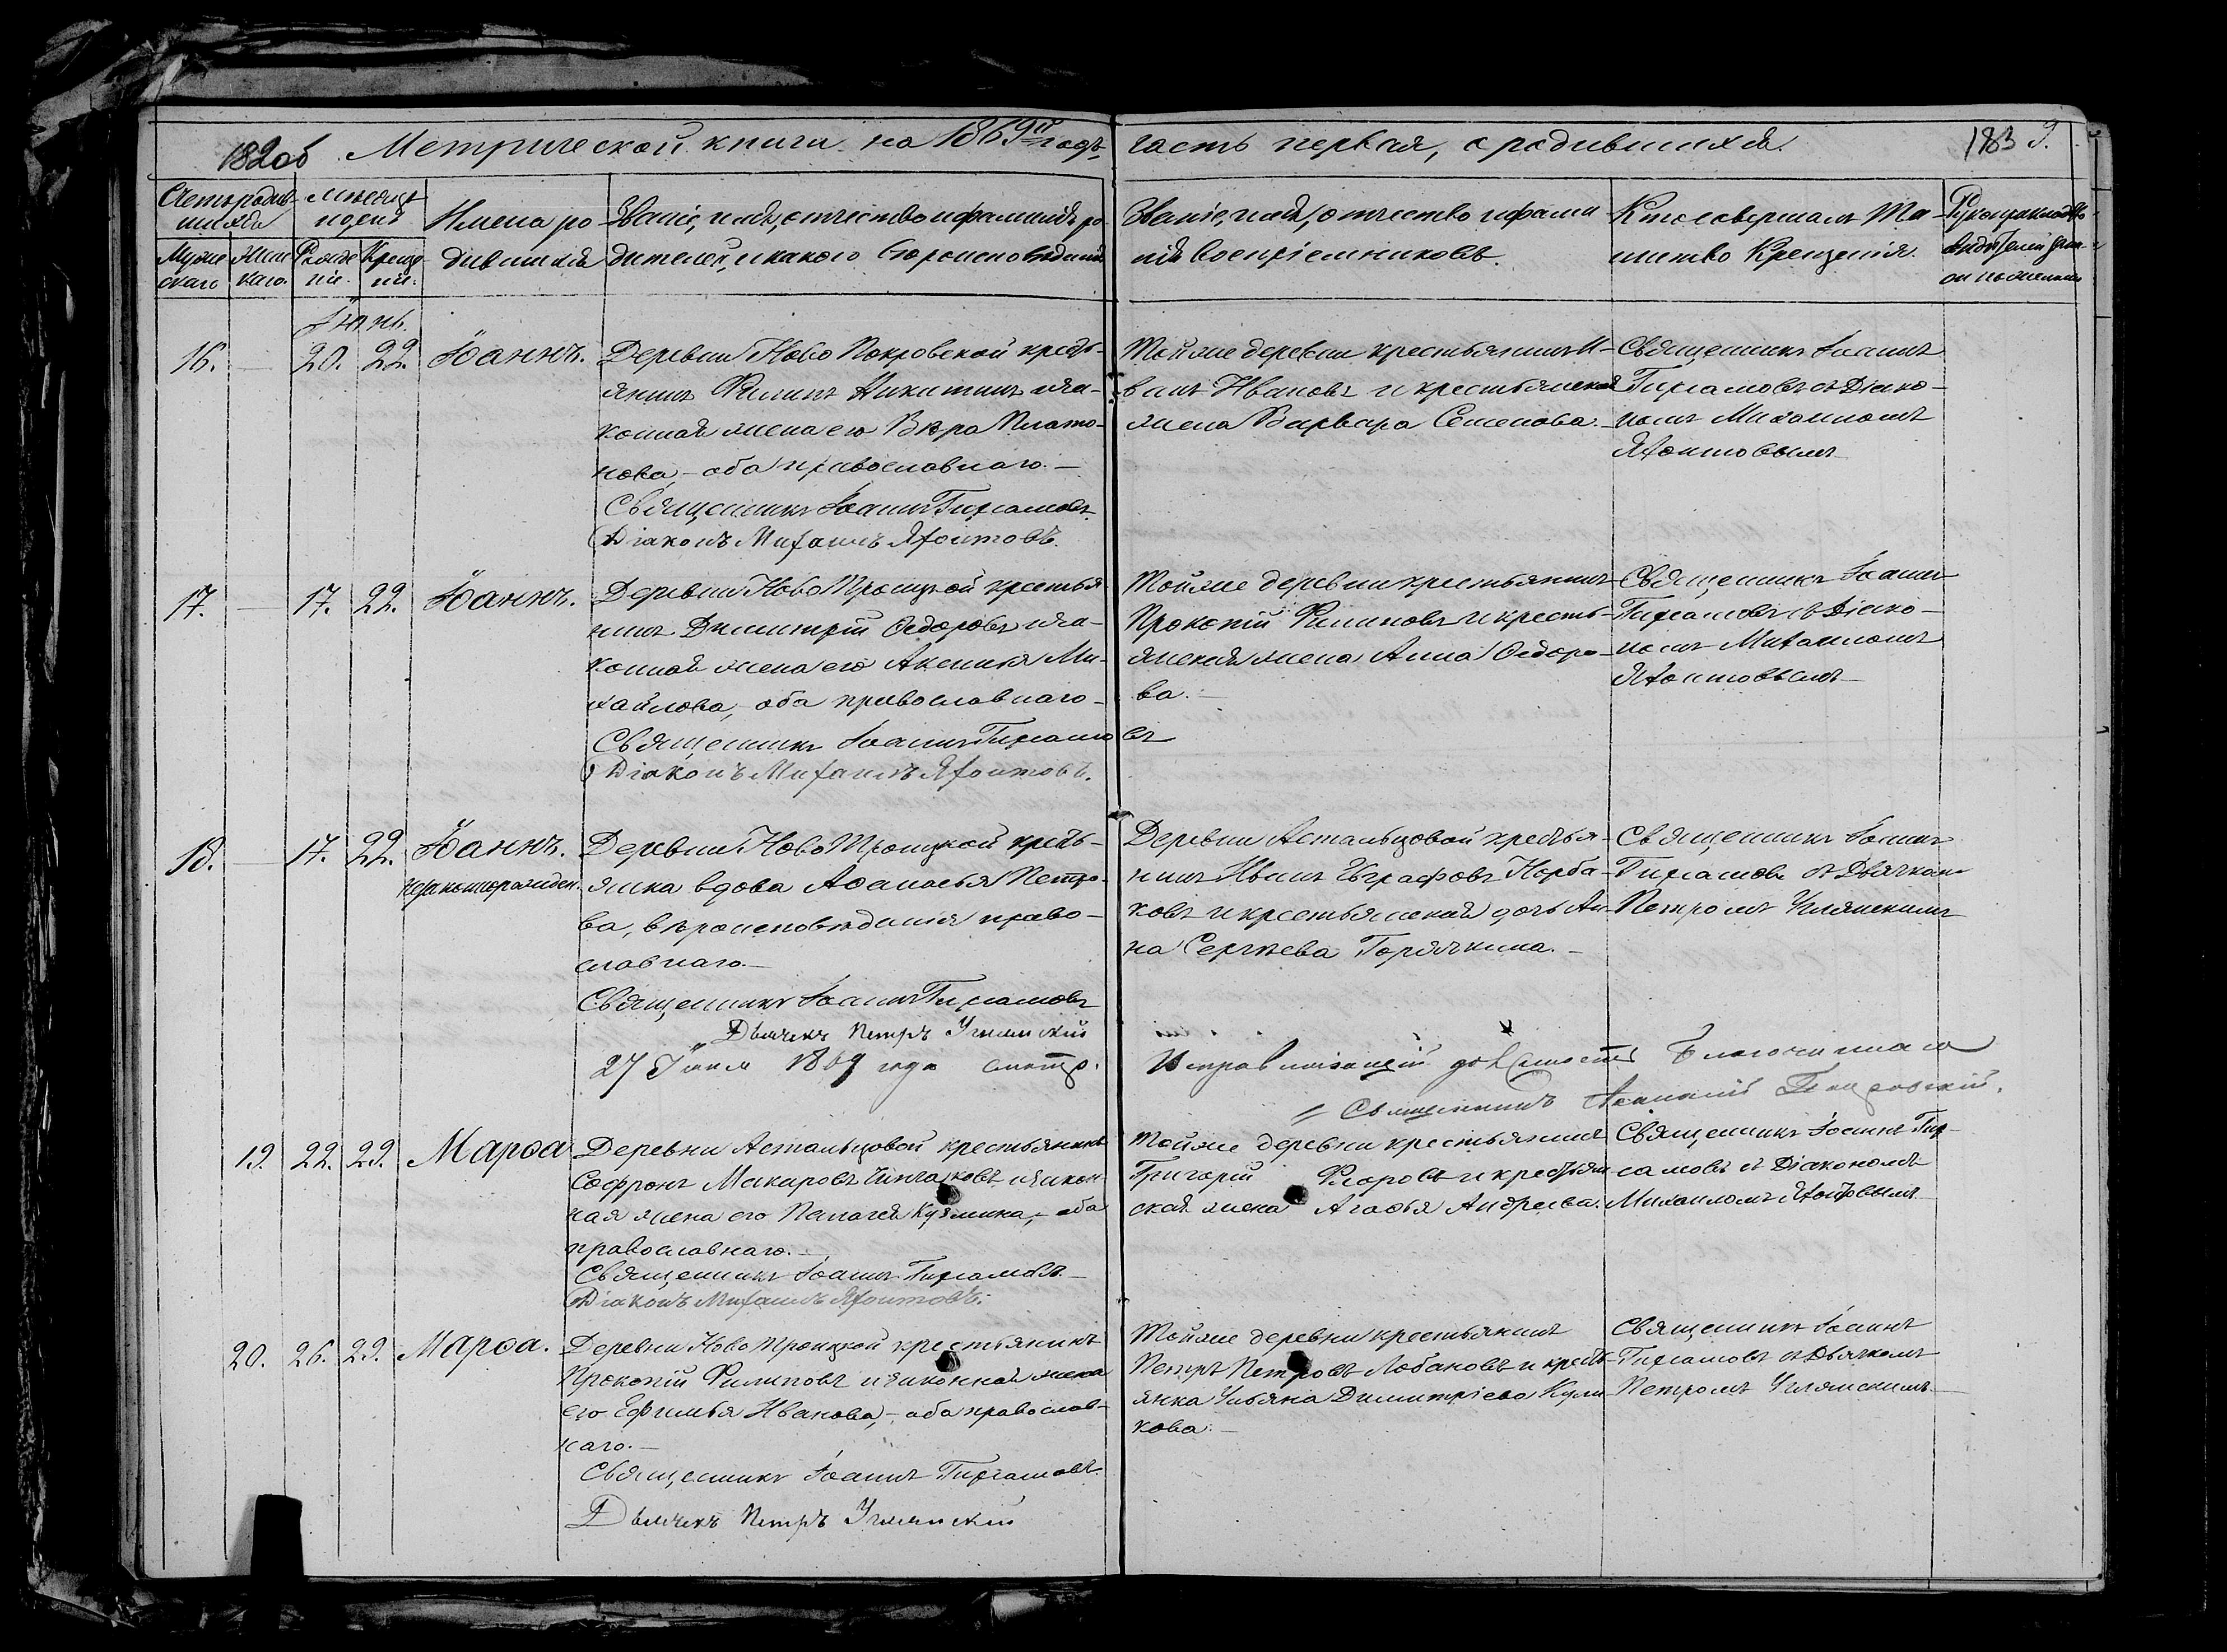 182об Метрической книги на 1869й годъ, часть первая, о родившихся. 183 9.
Счетъ родив-
шихся
Мѣсяцъ
и день
Имена ро
дившихся
Званіе, имя, отчество и фамилія ро
дителей, и какого вѣроисповѣданія
Званіе, имя, отчество и фами
лія воспріемниковъ.
Кто совершалъ Та
инство Крещенія.
Рукоприкладство
свидѣтелей записи
по желанію
Муже
скаго
Жен
скаго.
Рожде
нія.
Креще
нія.
Іюнь.
16. — 20. 22. Іоаннъ.
Деревни Ново Покровской кресть-
янинъ Филипъ Никитинъ и за-
конная жена его Вѣра Плато-
нова, – оба православнаго. –
Священникъ Іоаннъ Гирсамовъ.
Діаконъ Михаилъ Яхонтовъ.
Тойже деревни крестьянинъ И-
ванъ Ивановъ и крестьянская
жена Варвара Семенова. –
Священникъ Іоаннъ
Гирсамовъ съ Діако-
номъ Михаиломъ
Яхонтовымъ
17. — 17. 22. Іоаннъ.
Деревни Ново Троицкой крестья
нинъ Димитрій Ѳедоровъ и за-
конная жена его Аксинія Ми-
хайлова, – оба православнаго –
Священникъ Іоаннъ Гирсамо въ
Діаконъ Михаилъ Яхонтовъ.
Тойже деревни крестьянинъ
Прокопій Филиповъ и кресть-
янская жена Анна Ѳедоро-
ва. –
Священникъ Іоаннъ
Гирсамовъ съ Діако-
номъ Михаиломъ
Яхонтовымъ –
18. — 17. 22. Іоаннъ.
незаконнорожден.
Деревни Ново Троицкой кресть-
янка вдова Аѳанасья Петро-
ва, вѣроисповѣданія право-
славнаго. –
Священникъ Іоаннъ Гирсамовъ
Дьячекъ Петръ Углянскій
Деревни Астальцовой крестья-
нинъ Иванъ Евграфовъ Корба-
ковъ и крестьянская дочь Ан-
на Сергѣева Горячкина. –
Священникъ Іоаннъ
Гирсамовъ съ Дьячкомъ
Петромъ Углянскимъ
27 Іюня 1869 года смотр.
Исправляющій должность Благочиннаго
Священникъ
19. 22. 29. Марѳа
Деревни Астальцовой крестьянинъ
Софронъ Макаровъ и закон-
ная жена его Пелагея Кузмина, – оба
православнаго. –
Священникъ Іоаннъ Гирсамовъ –
Діаконъ Михаилъ Яхонтовъ.
Тойже деревни крестьянинъ
Григорій Флоровъ и крестьян
ская жена Агаѳья Андреева.
Священникъ Іоаннъ Гир-
самовъ съ Діакономъ
Михаиломъ Яхонтовымъ
20. 26. 29. Марѳа.
Деревни Ново Троицкой крестьянинъ
Прокопій Филиповъ и законная жена
его Ефимья Иванова, – оба православ-
наго. –
Священникъ Іоаннъ Гирсамовъ.
Дьячекъ Петръ Углянскій
Тойже деревни крестьянинъ
Петръ Петровъ Лобановъ и кресть-
янка Ульяна Димитріева Кули
кова. –
Священникъ Іоаннъ
Гирсамовъ съ Дьячкомъ
Петромъ Углянскимъ –